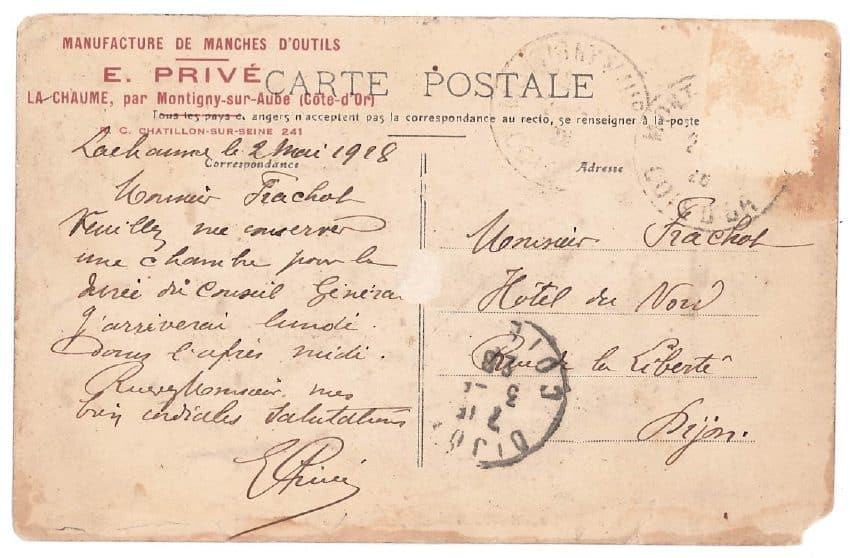 MANUFACTURE DE MANCHES D'OUTILS
E. PRIVÉ
CARTE POSTALE
LA CHAUME, par Montigny-sur-Aube (Côte-d'Or)
Tous les pays étrangers n'acceptent pas la correspondance au recto, se renseigner à la poste
C. CHATILLON-SUR-SEINE 241
Lachaume le 2 Mai 1928
Correspondance
Monsieur Frachot
Veuillez me conserver
une chambre pour la
durée du Conseil Général
J'arriverai lundi
dans l'après midi.
Monsieur, mes
bien cordiales salutations
E Privé
Adresse
Monsieur Frachot
Hôtel du Nord
Rue de la Liberté
Dijon.
DIJON
COTE
3
28